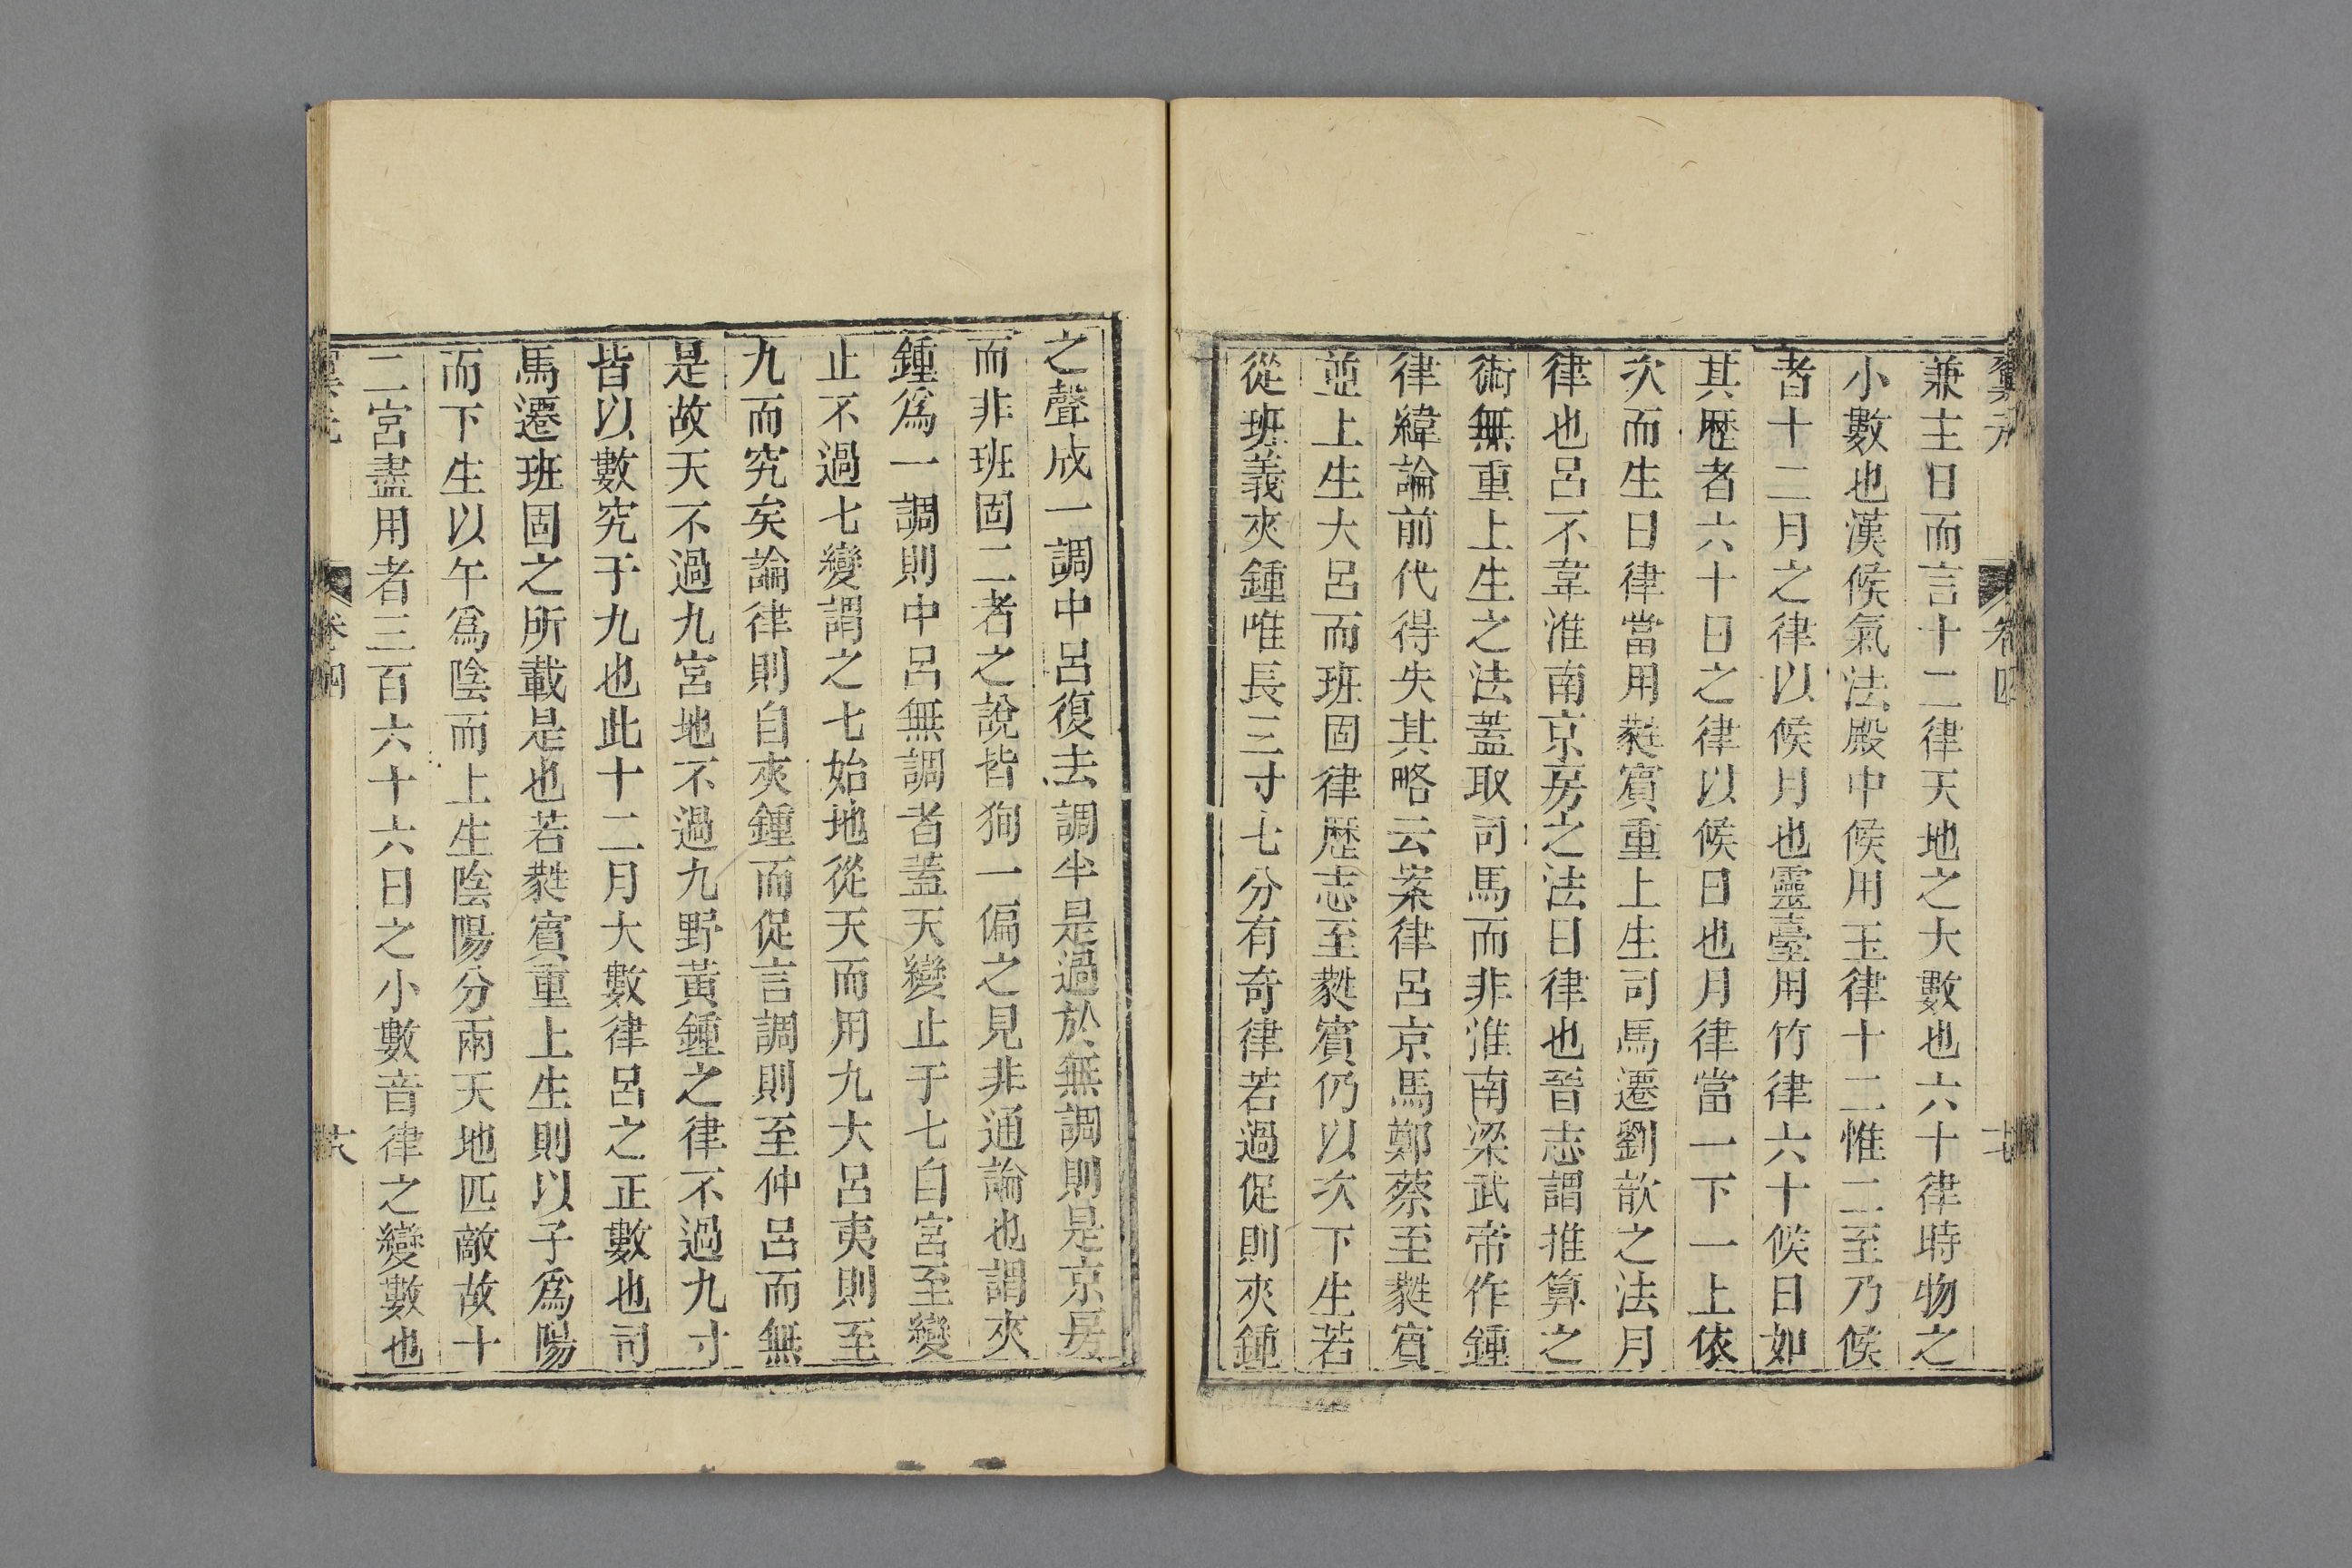 翼元
卷四
十七
兼主日而言十二律天地之大數也六十律時物之
小數也漢候氣法殿中候用玉律十二惟二至乃候
者十二月之律以候月也靈臺用竹律六十候日如
其歷者六十日之律以候日也月律當一下一上依
次而生日律當用蕤賓重上生司馬遷劉歆之法月
律也呂不韋淮南京房之法日律也晉志謂推算之
術無重上生之法蓋取司馬而非淮南梁武帝作鍾
律緯論前代得失其略云案律呂京馬鄭蔡至蕤賓
並上生大呂而班固律歷志至蕤賓仍以次下生若
從班義夾鍾唯長三寸七分有奇律若過促則夾鍾
之聲成一調中呂復去調半是過於無調則是京房
而非班固二者之說皆狥一偏之見非通論也謂夾
鍾爲一調則中呂無調者蓋天變止于七自宮至變
止不過七變謂之七始地從天而用九大呂夷則至
九而究矣論律則自夾鍾而促言調則至仲呂而無
是故天不過九宮地不過九野黃鍾之律不過九寸
皆以數究于九也此十二月大數律呂之正數也司
馬遷班固之所載是也若蕤賓重上生則以子爲陽
而下生以午爲陰而上生陰陽分兩天地匹敵故十
二宮盡用者三百六十六日之小數音律之變數也
翼元
卷四